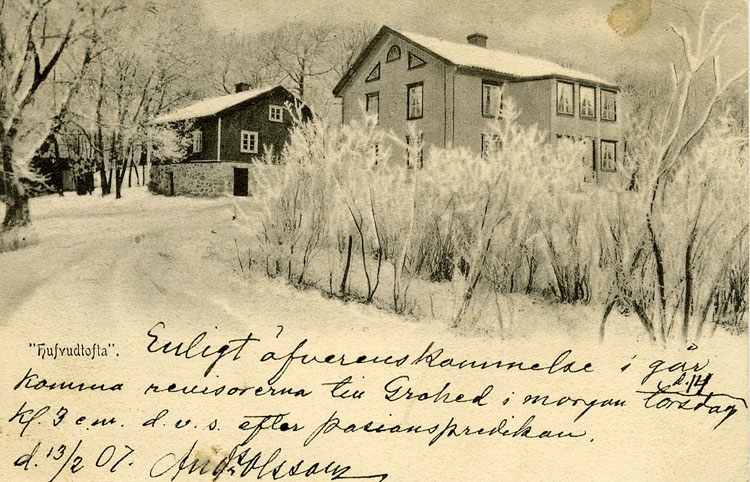 "Hufvudtofta".
Enligt öfverenskommelse i går
komma revisorerna till Grohed i morgon torsdag
d. 14
kl. 3 e.m. d.v.s. efter passionspredikan.
d. 13/2 07. And. Olsson